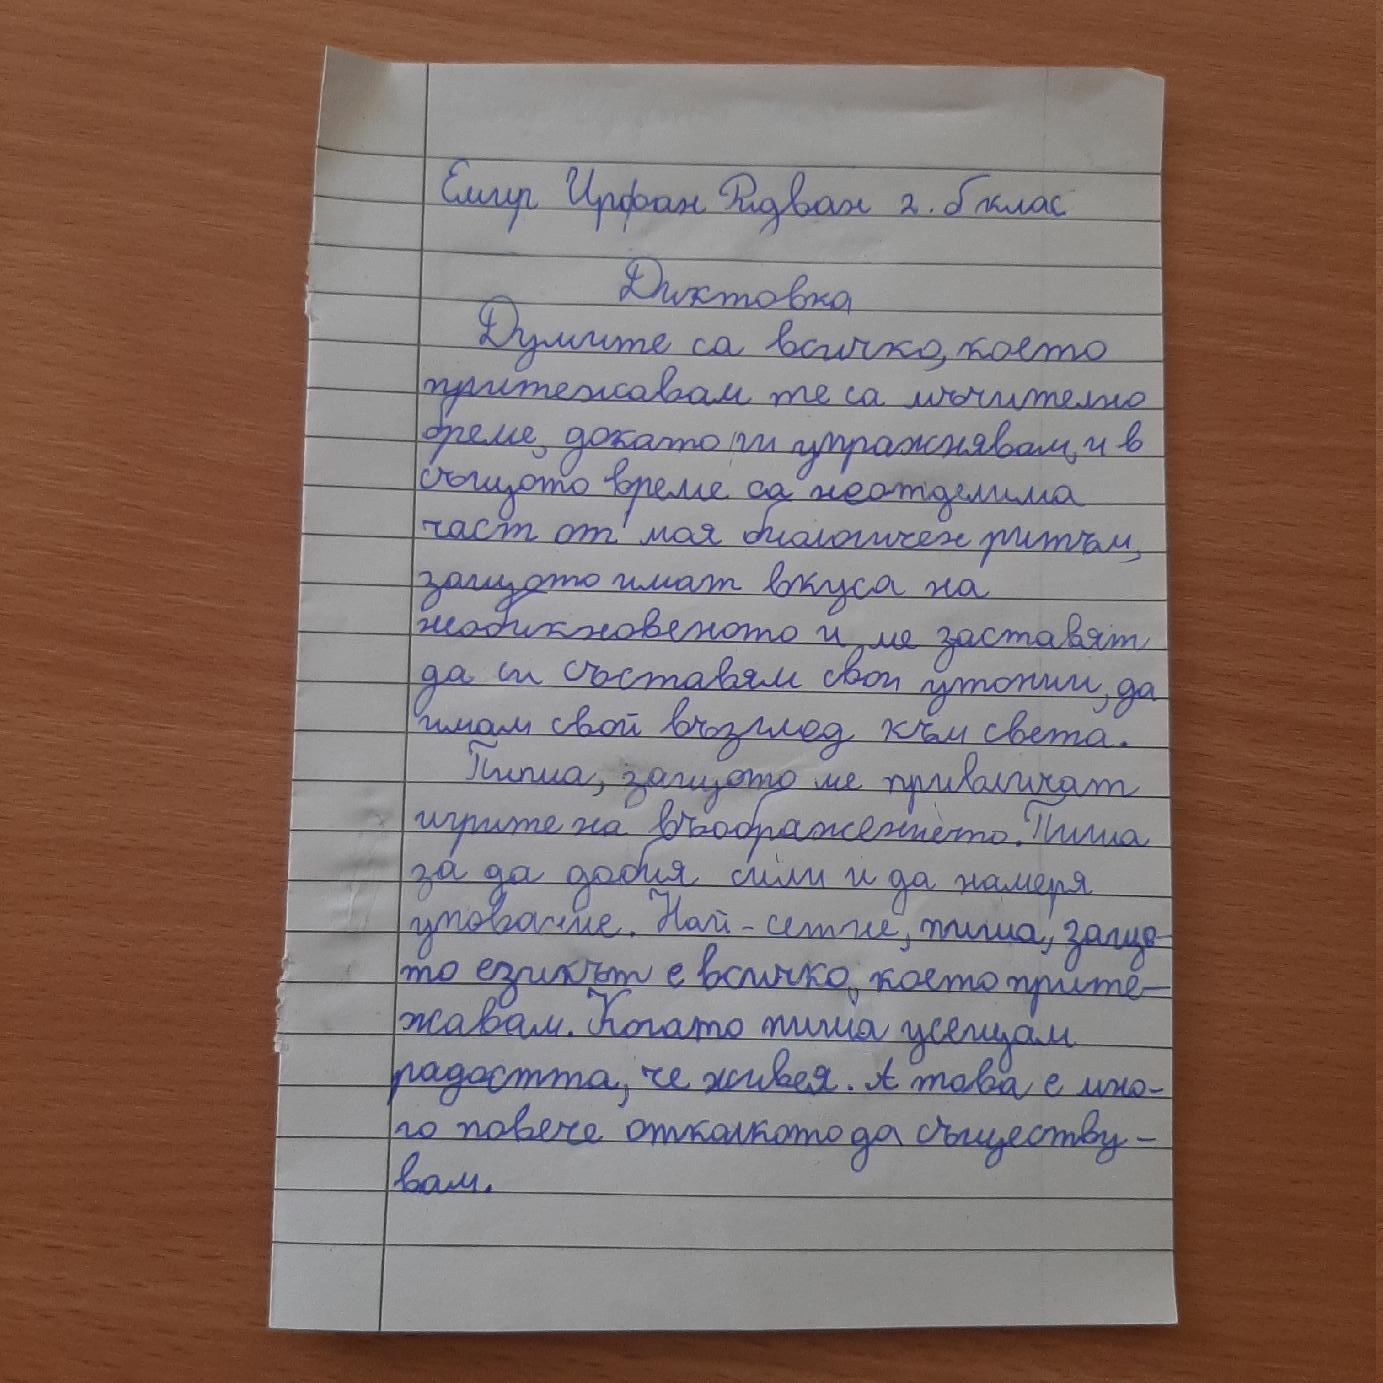 Емир Ирфан Ридван 2. б клас
Диктовка
Думите са всичко, което
притежавам те са мъчително
бреме, докато ги упражнявам, и в
същото време са неотделима
част от моя биологичен ритъм,
защото имат вкуса на
необикновеното и ме заставят
да си съставям свои утопии, да
имам свой възглед към света.
Пиша, защото ме привличат
игрите на въображението. Пиша
за да добия сили и да намеря
упование. Най-сетне, пиша, защо-
то езикът е всичко, което прите-
жавам. Когато пиша усещам
радостта, че живея. А това е мно-
го повече отколкото да съществу-
вам.